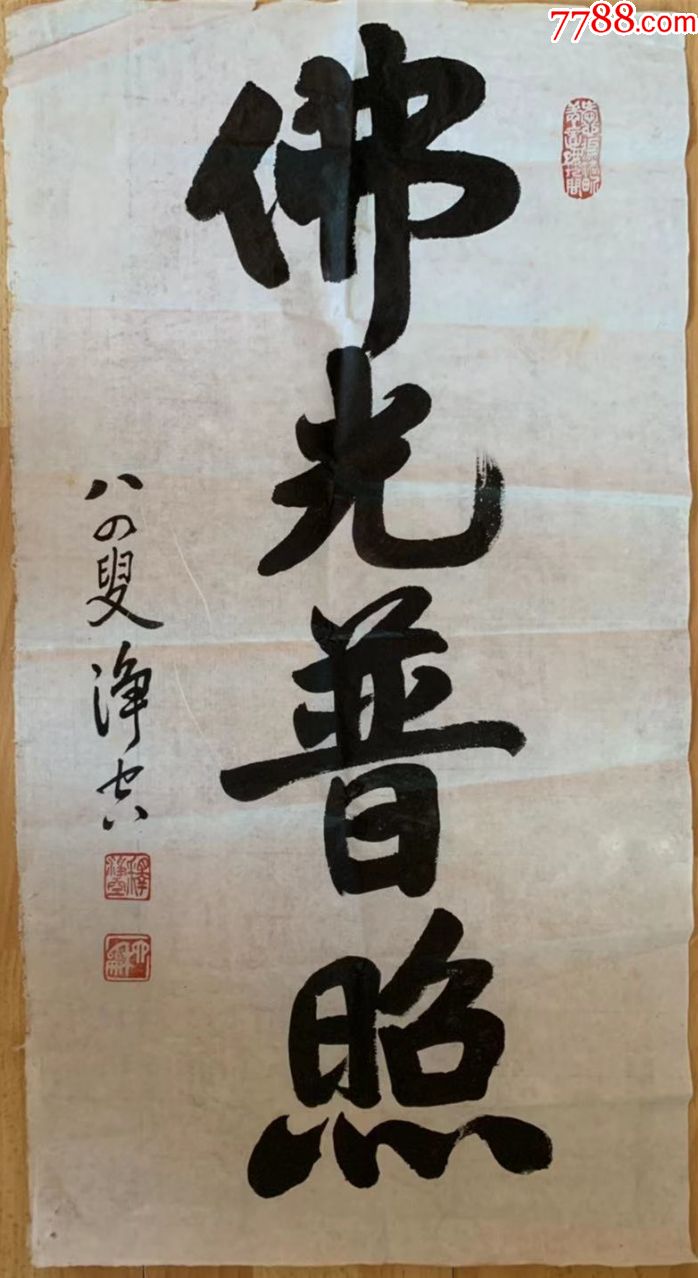 7788.com
佛光普照
八四叟 淨空